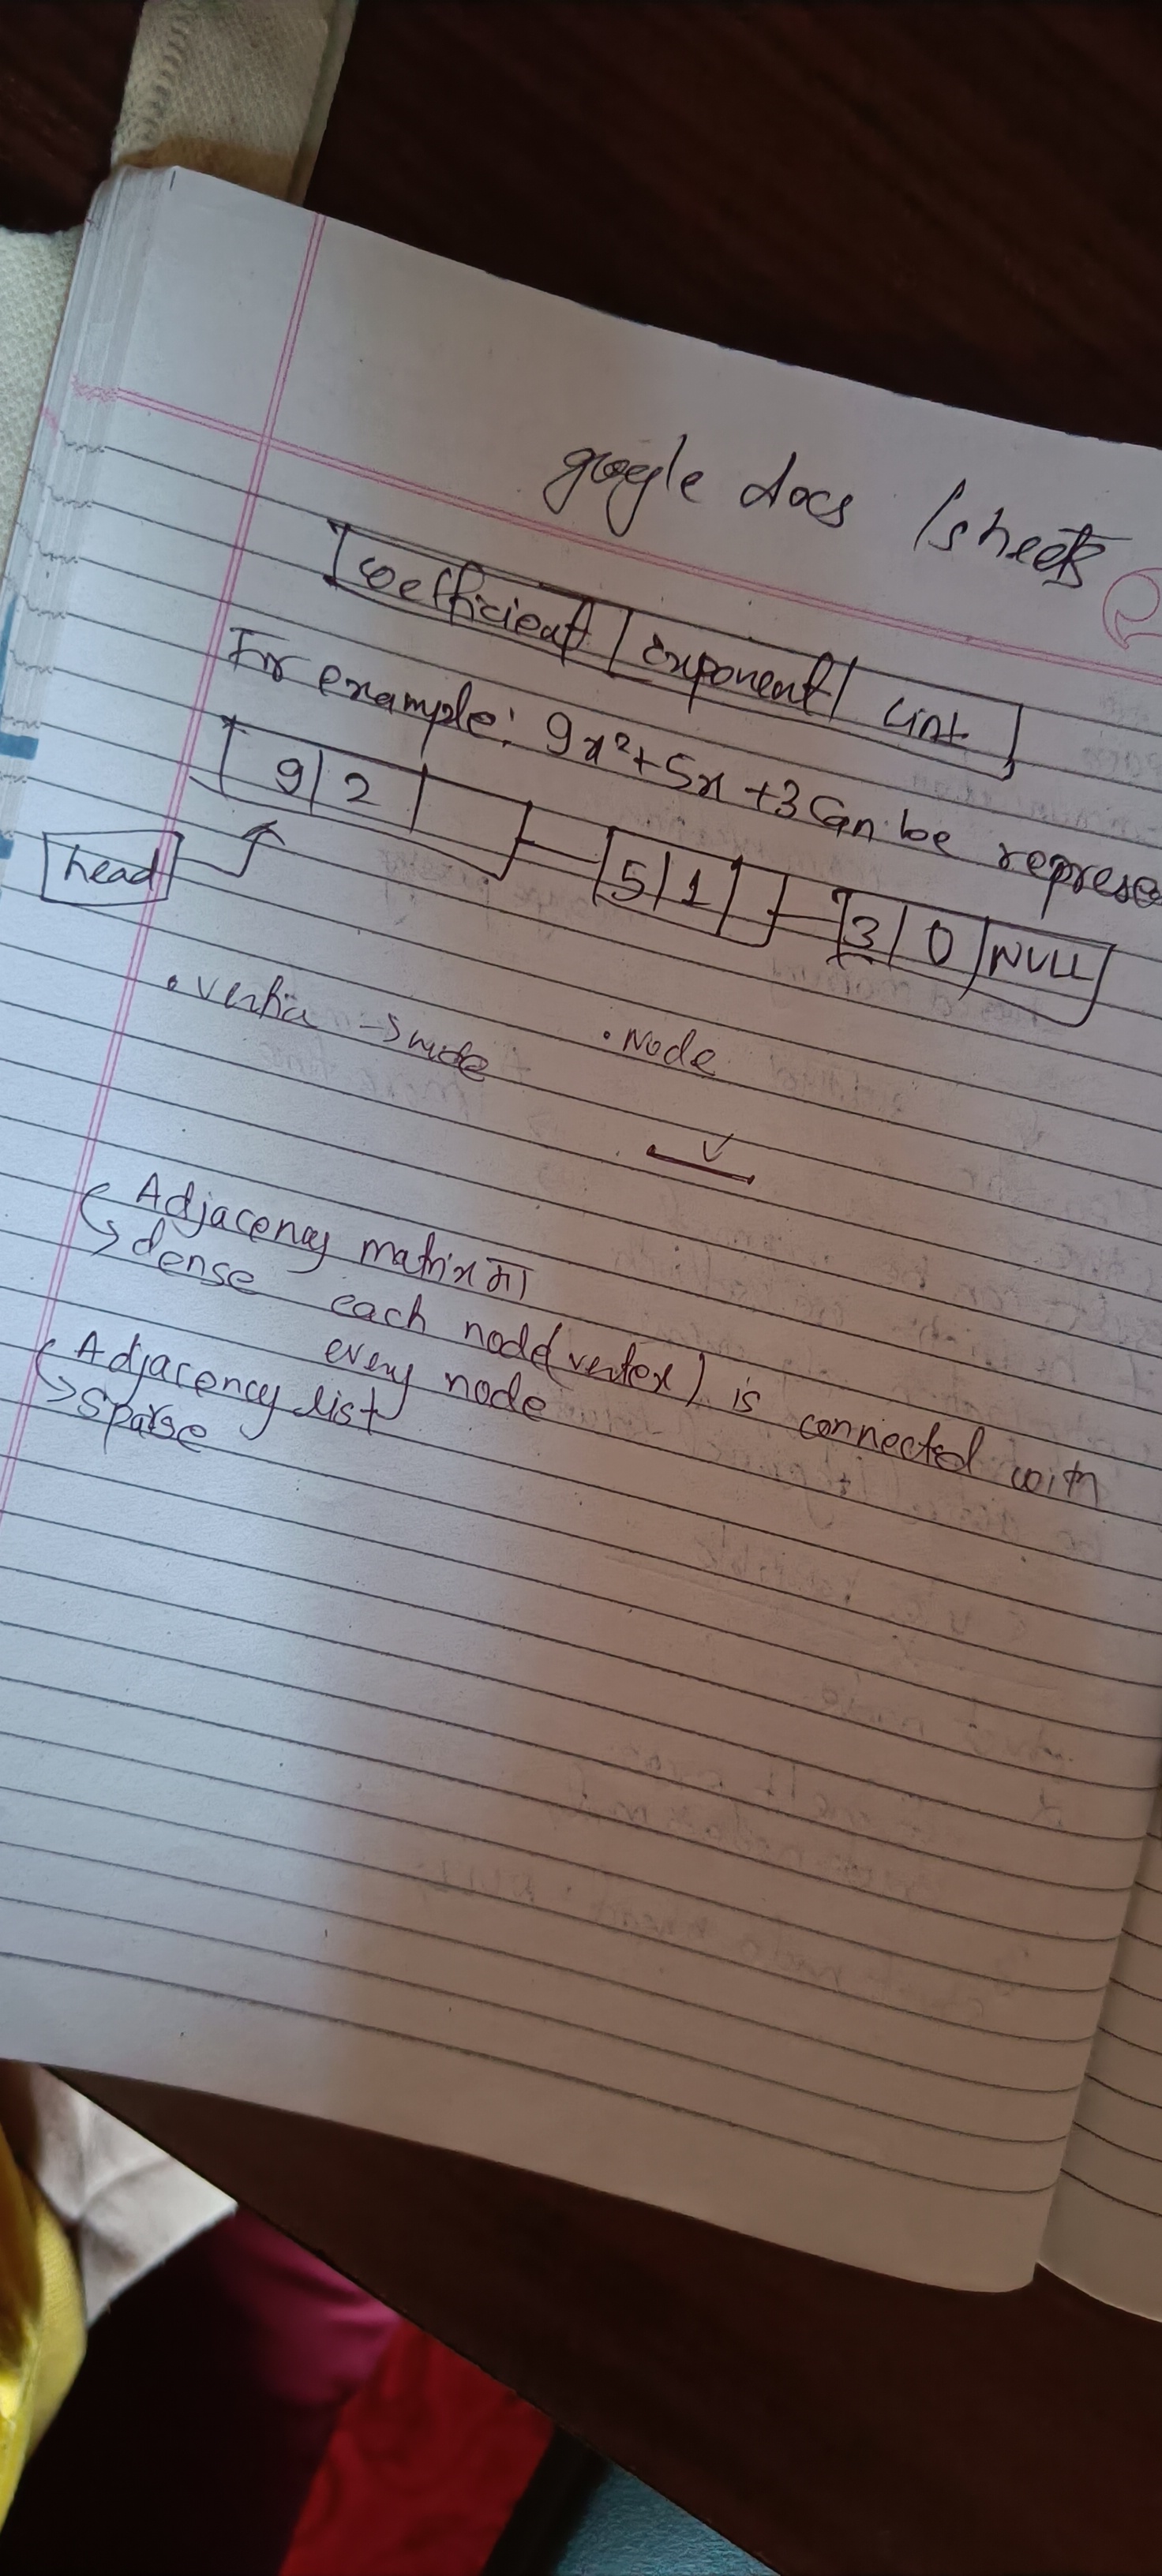 google docs /sheets
Coefficient | exponent | Lint
For example: 9x²+5x+3 can be represe
9 | 2
head
5 | 1
3 | 0 | NULL
• Node
Adjacency matrix
dense each node(vertex) is connected with
every node
Adjacency list
sparse